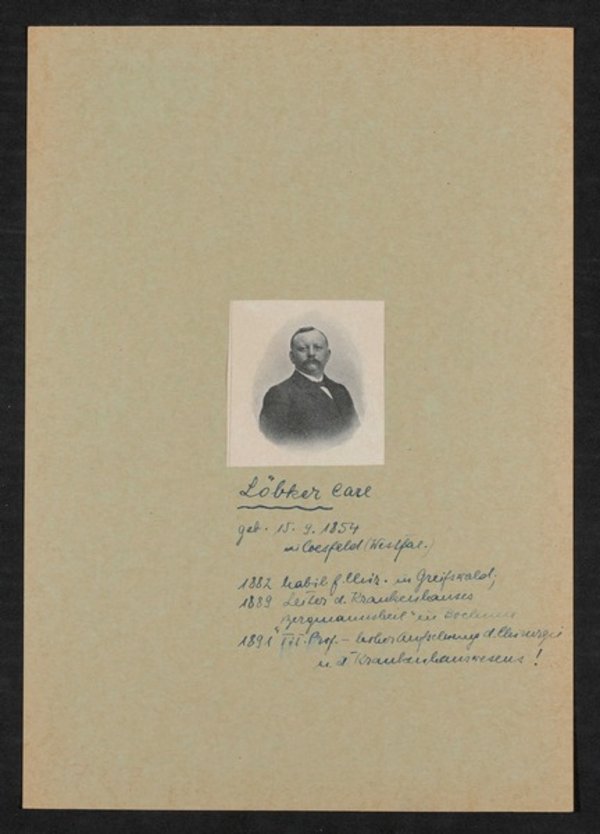 Löbker Carl
geb. 15. 9. 1854
in Coesfeld (Westfal.)
1882 habil f. Chir. in Greifswald;
1889 Leiter d. Krankenhauses
"Bergmannsheil" in Bochum
1891 Tit. Prof. – hoher Aufschwung d. Chirurgie
u. d. Krankenhauswesens!